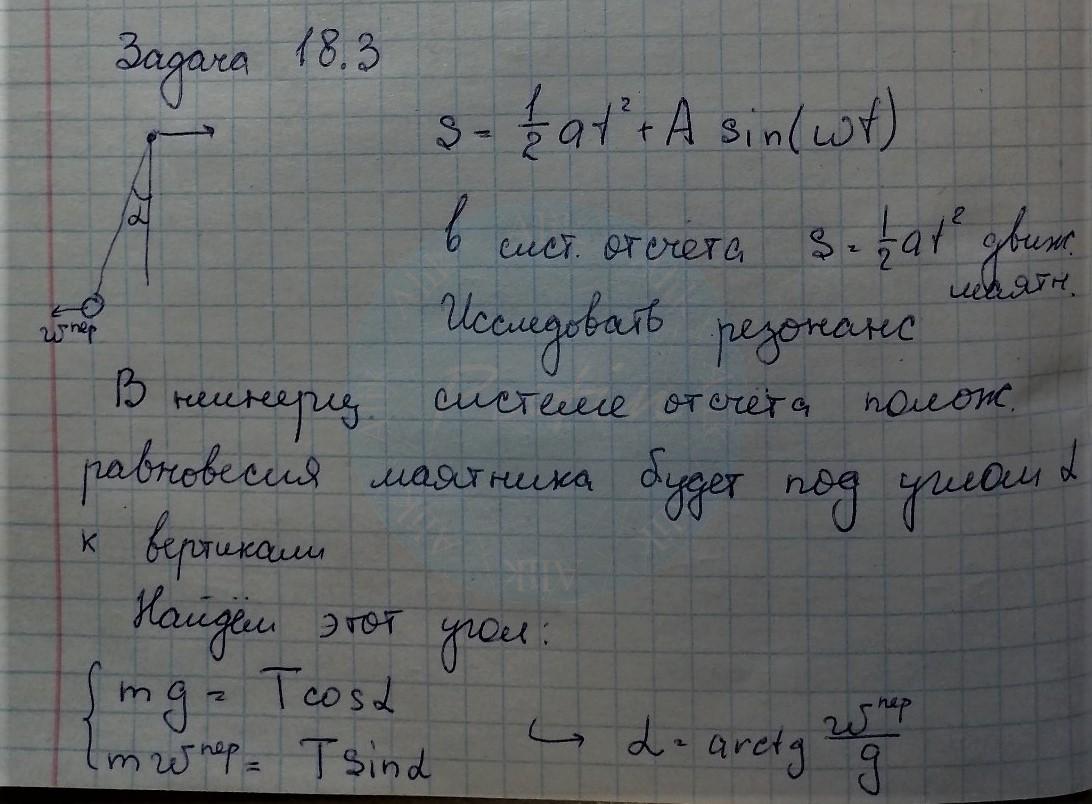 Задача 18.3
s = 1/2 at² + A sin(ωt)
α
в сист. отсчёта s = 1/2 at² движ.
маятн.
w^пер
Исследовать резонанс
В неинерц. системе отсчёта полож.
равновесия маятника будет под углом α
к вертикали
АПК
Найдём этот угол:
{ mg = T cosα
{ mw^пер = T sinα ↪ α = arctg w^пер/g